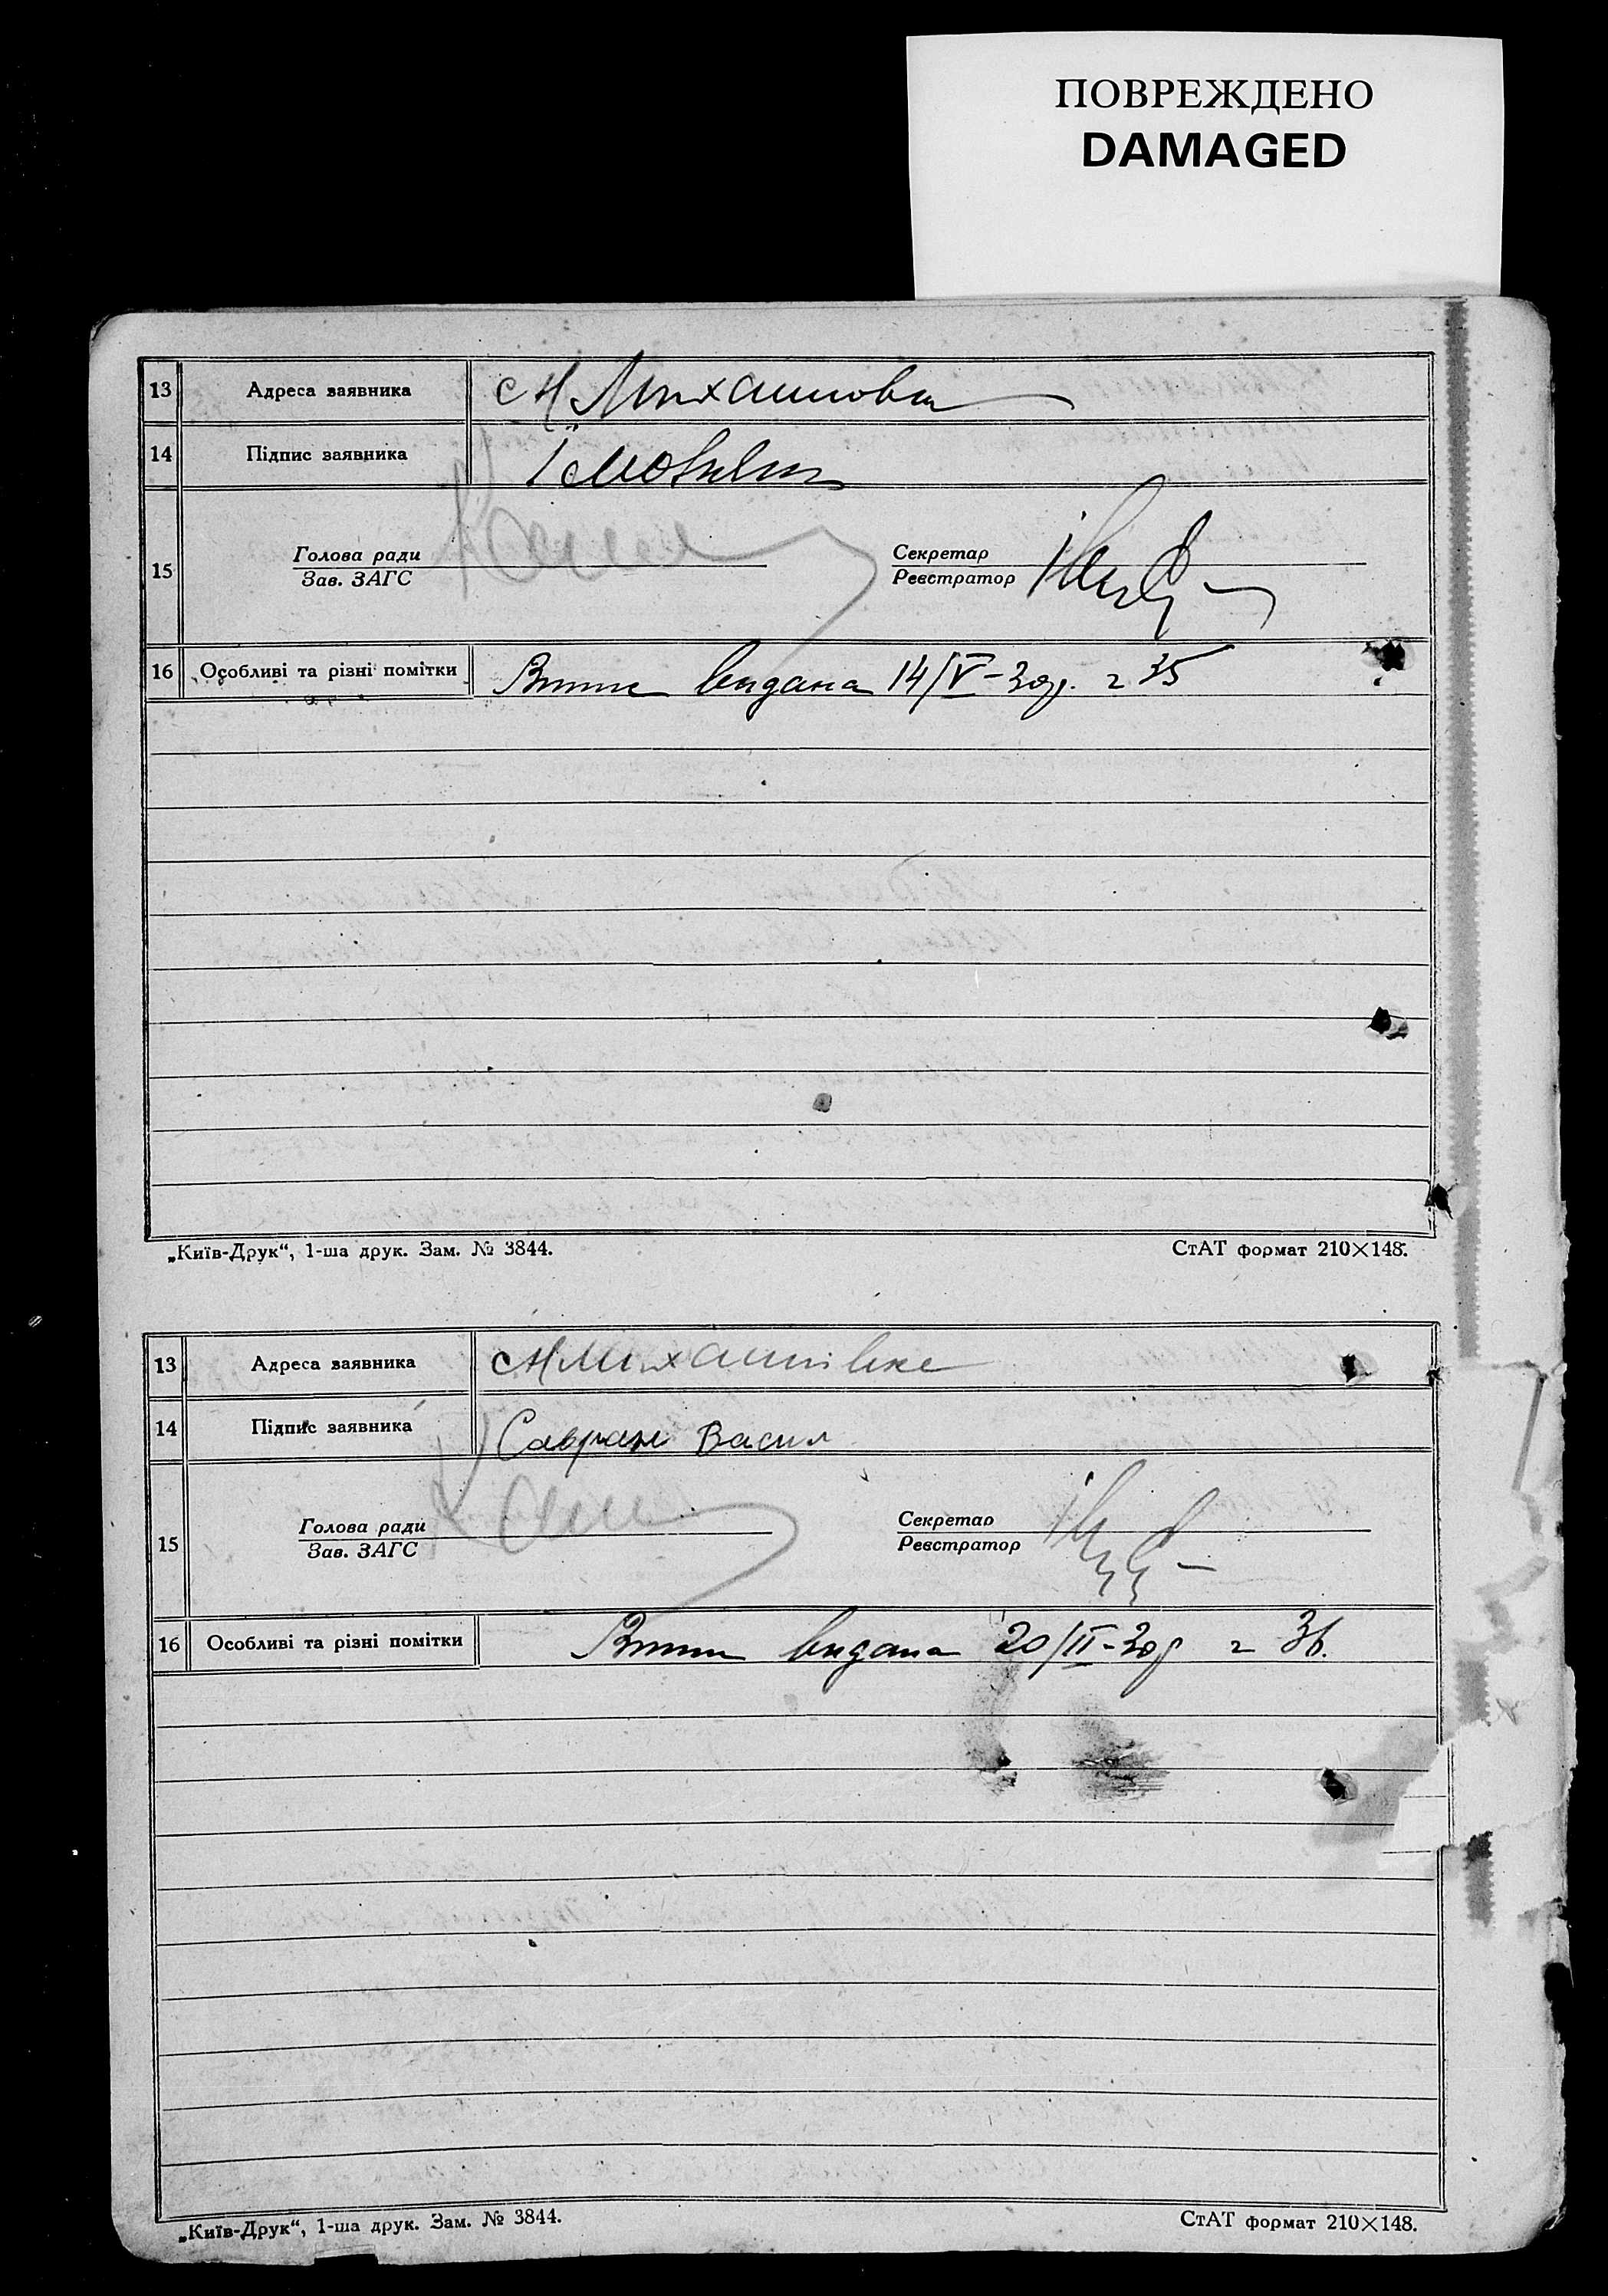 ПОВРЕЖДЕНО
DAMAGED
13 Адреса заявника
14 Підпис заявника
15 Голова ради Секретар
Зав. ЗАГС Реєстратор
16 Особливі та різні помітки видана 14/V-30р. 35
„Київ-Друк“, 1-ша друк. Зам. № 3844. СтАТ формат 210×148.
13 Адреса заявника
14 Підпис заявника Савран Васил
15 Голова ради Секретар
Зав. ЗАГС Реєстратор
16 Особливі та різні помітки видана 20/II-30р 36.
„Київ-Друк“, 1-ша друк. Зам. № 3844. СтАТ формат 210×148.